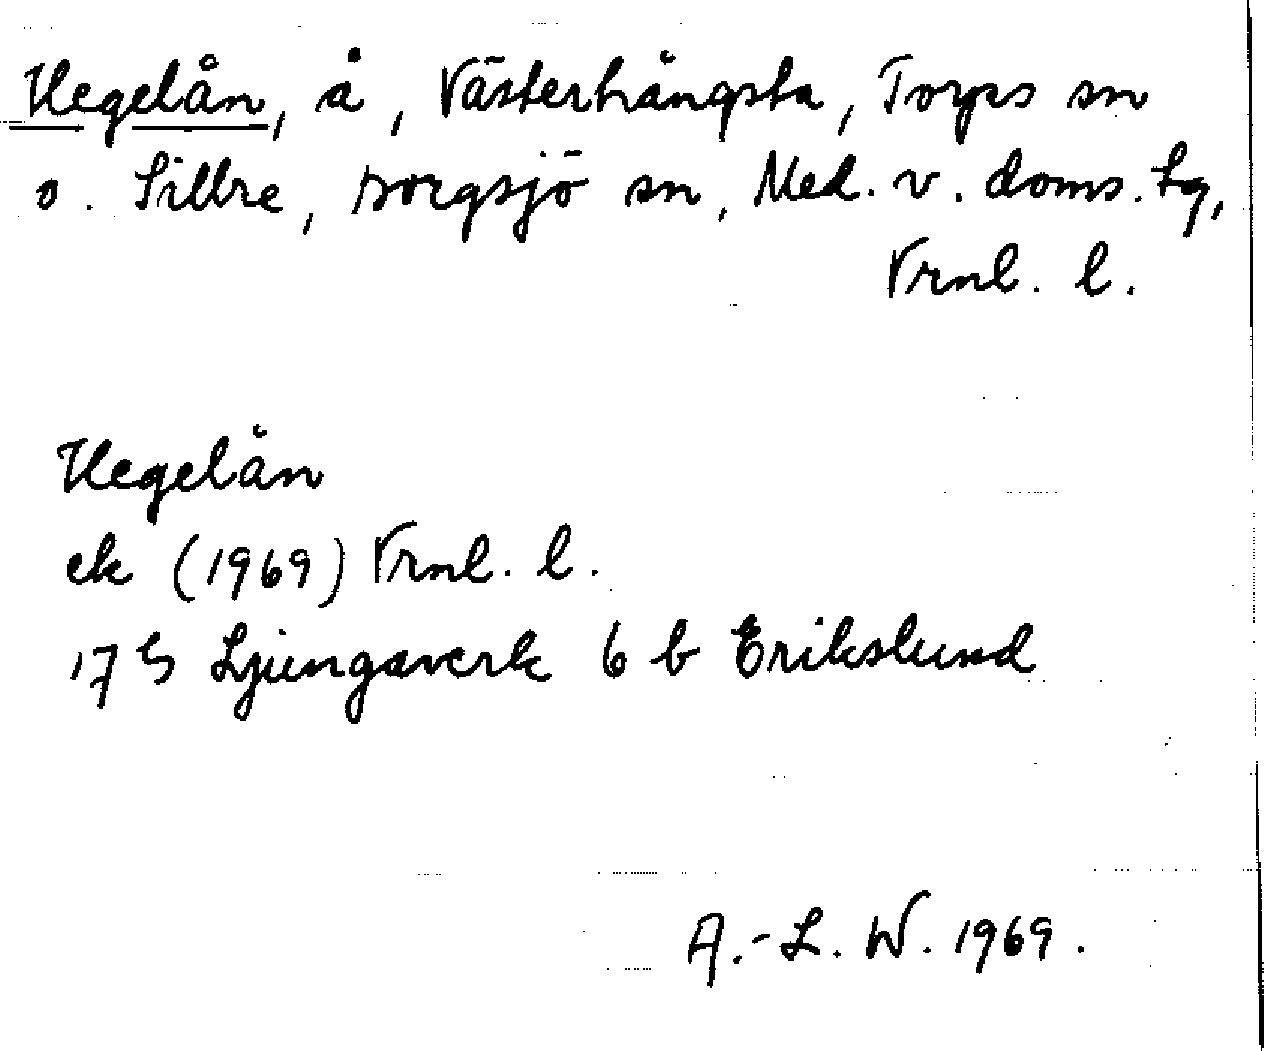 Hegelån, å, Västerhångsta, Torps sn
o. Sillre, Borgsjö sn, Med. v. doms. tg,
Vrnl. l.
Hegelån
ek (1969) Vrnl. l.
17 G Ljungaverk 6 b Erikslund
A.-L. W. 1969.